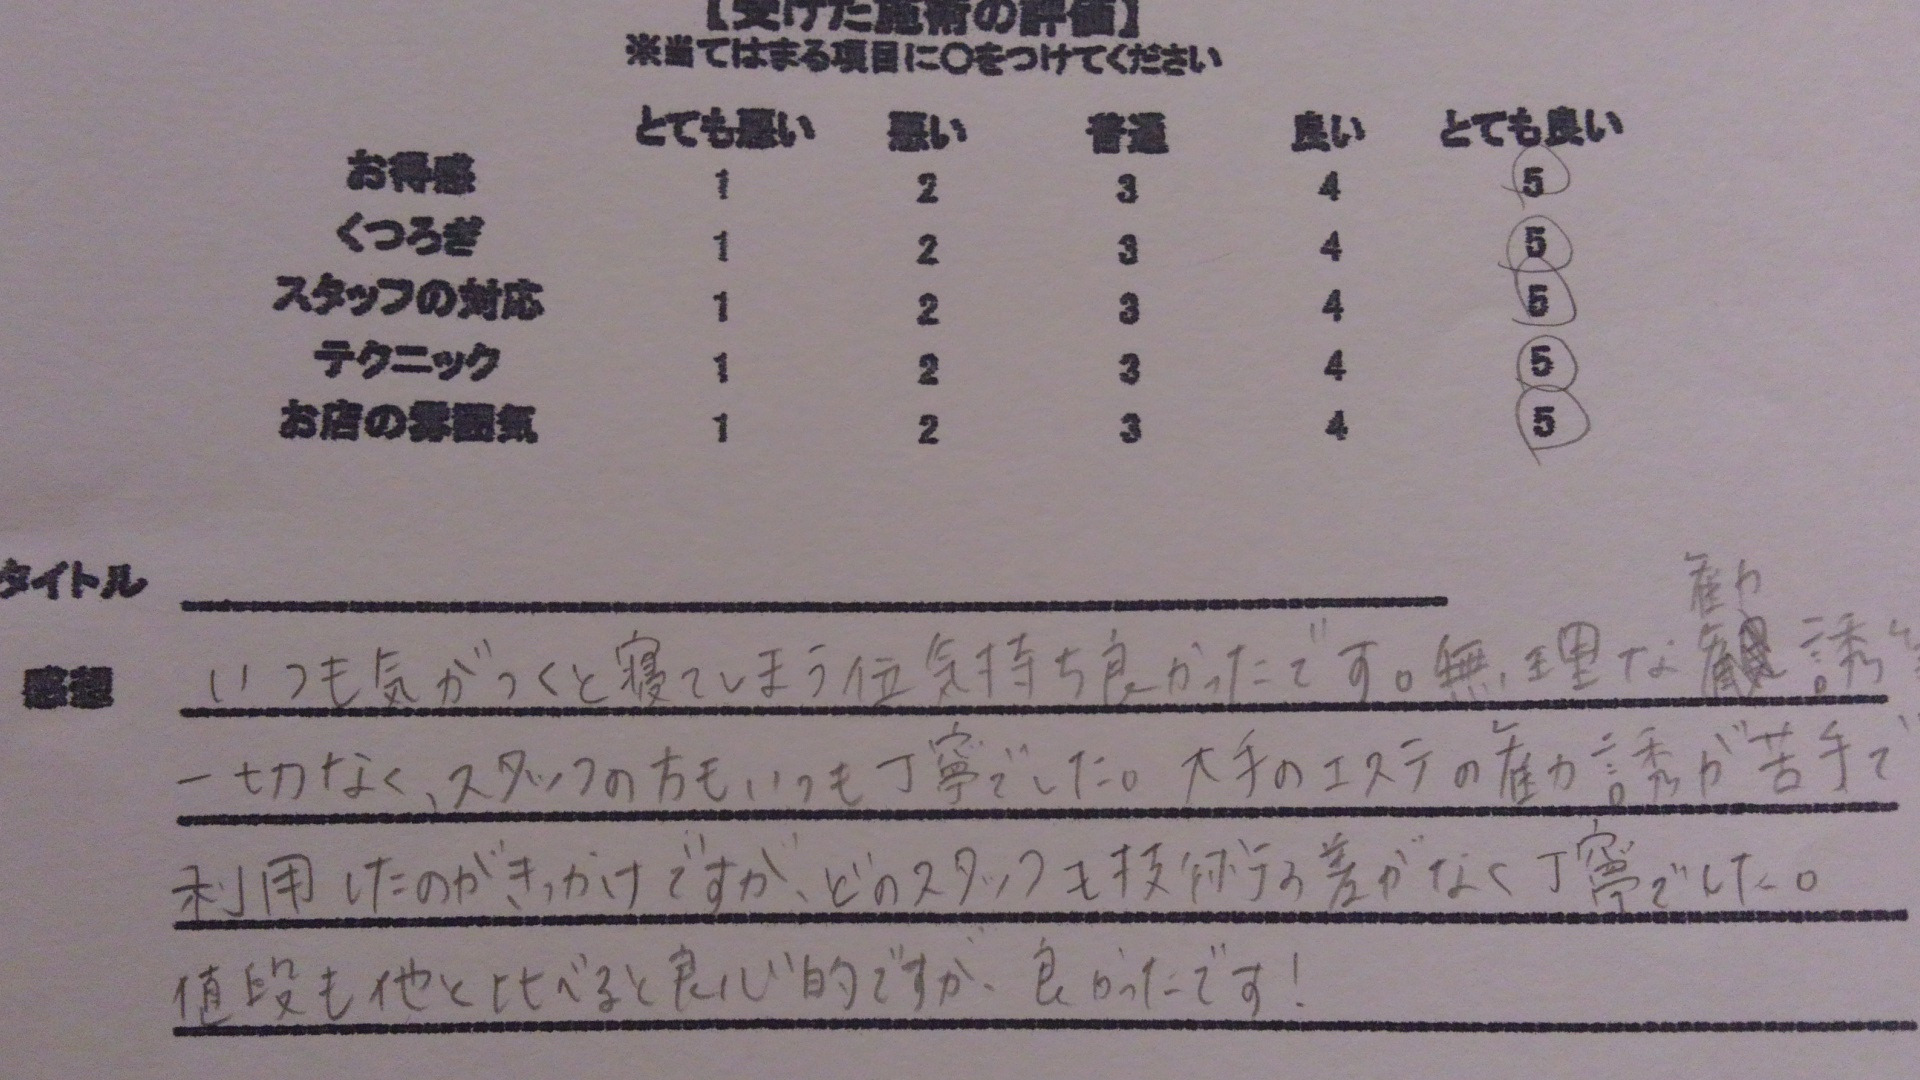 【受けた施術の評価】
※当てはまる項目に○をつけてください
とても悪い 悪い 普通 良い とても良い
お得感 1 2 3 4 5
くつろぎ 1 2 3 4 5
スタッフの対応 1 2 3 4 5
テクニック 1 2 3 4 5
お店の雰囲気 1 2 3 4 5
タイトル
勧
感想 いつも気がつくと寝てしまう位気持ち良かったです。無理な 誘
一切なく、スタッフの方もいつも丁寧でした。大手のエステの勧誘が苦手で
利用したのがきっかけですが、どのスタッフも技術の差がなく丁寧でした。
値段も他と比べると良心的ですが、良かったです!